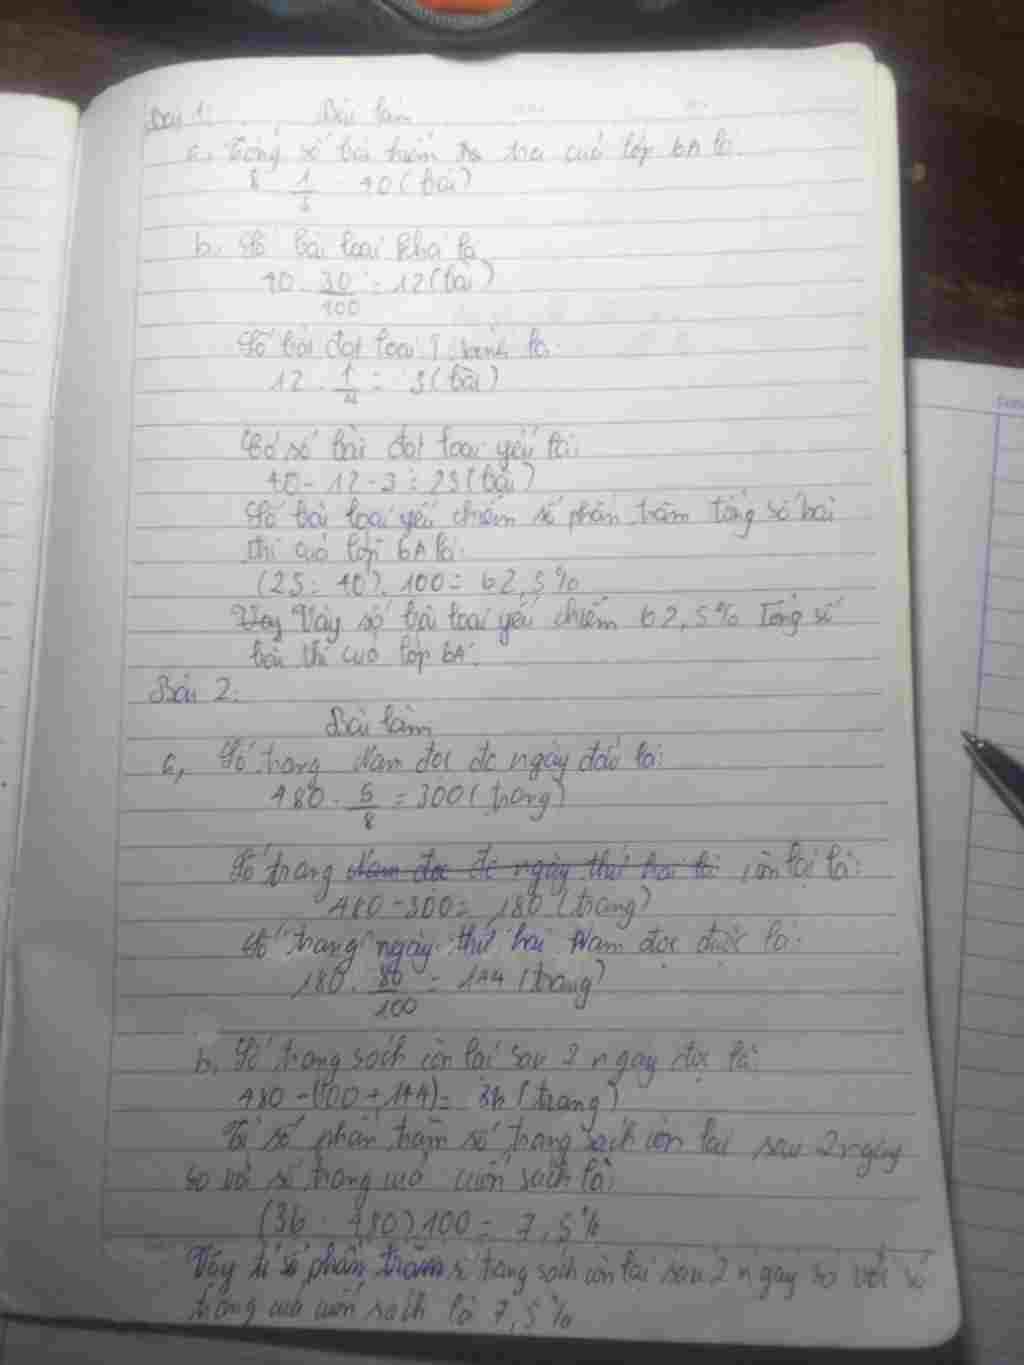 Bài 1: Bài làm
a, Tổng số bài kiểm tra của lớp 6A là:
8 : 1/5 = 40 (bài)
b, Số bài loại khá là
40 . 30/100 = 12 (bài)
Số bài đạt loại là:
12 . 1/4 = 3 (bài)
số bài đạt loại yếu là:
40 - 12 - 3 = 25 (bài)
Số bài loại yếu chiếm số phần trăm tổng số bài
thi của lớp 6A là:
(25 : 40) . 100 = 62,5%
Vậy số bài loại yếu chiếm 62,5% tổng số
bài thi của lớp 6A.
Bài 2:
Bài làm
a, Số trang Nam đọc đc ngày đầu là:
480 . 5/8 = 300 (trang)
Số trang còn lại là:
480 - 300 = 180 (trang)
Số trang ngày thứ hai Nam đọc được là:
180 . 80/100 = 144 (trang)
b, Số trang sách còn lại sau 2 ngày đọc là:
480 - (300 + 144) = 36 (trang)
Tỉ số phần trăm số trang sách còn lại sau 2 ngày
so với số trang của cuốn sách là:
(36 : 480).100 = 7,5%
Vậy tỉ số phần trăm số trang sách còn lại sau 2 ngày so với số
trang của cuốn sách là 7,5%